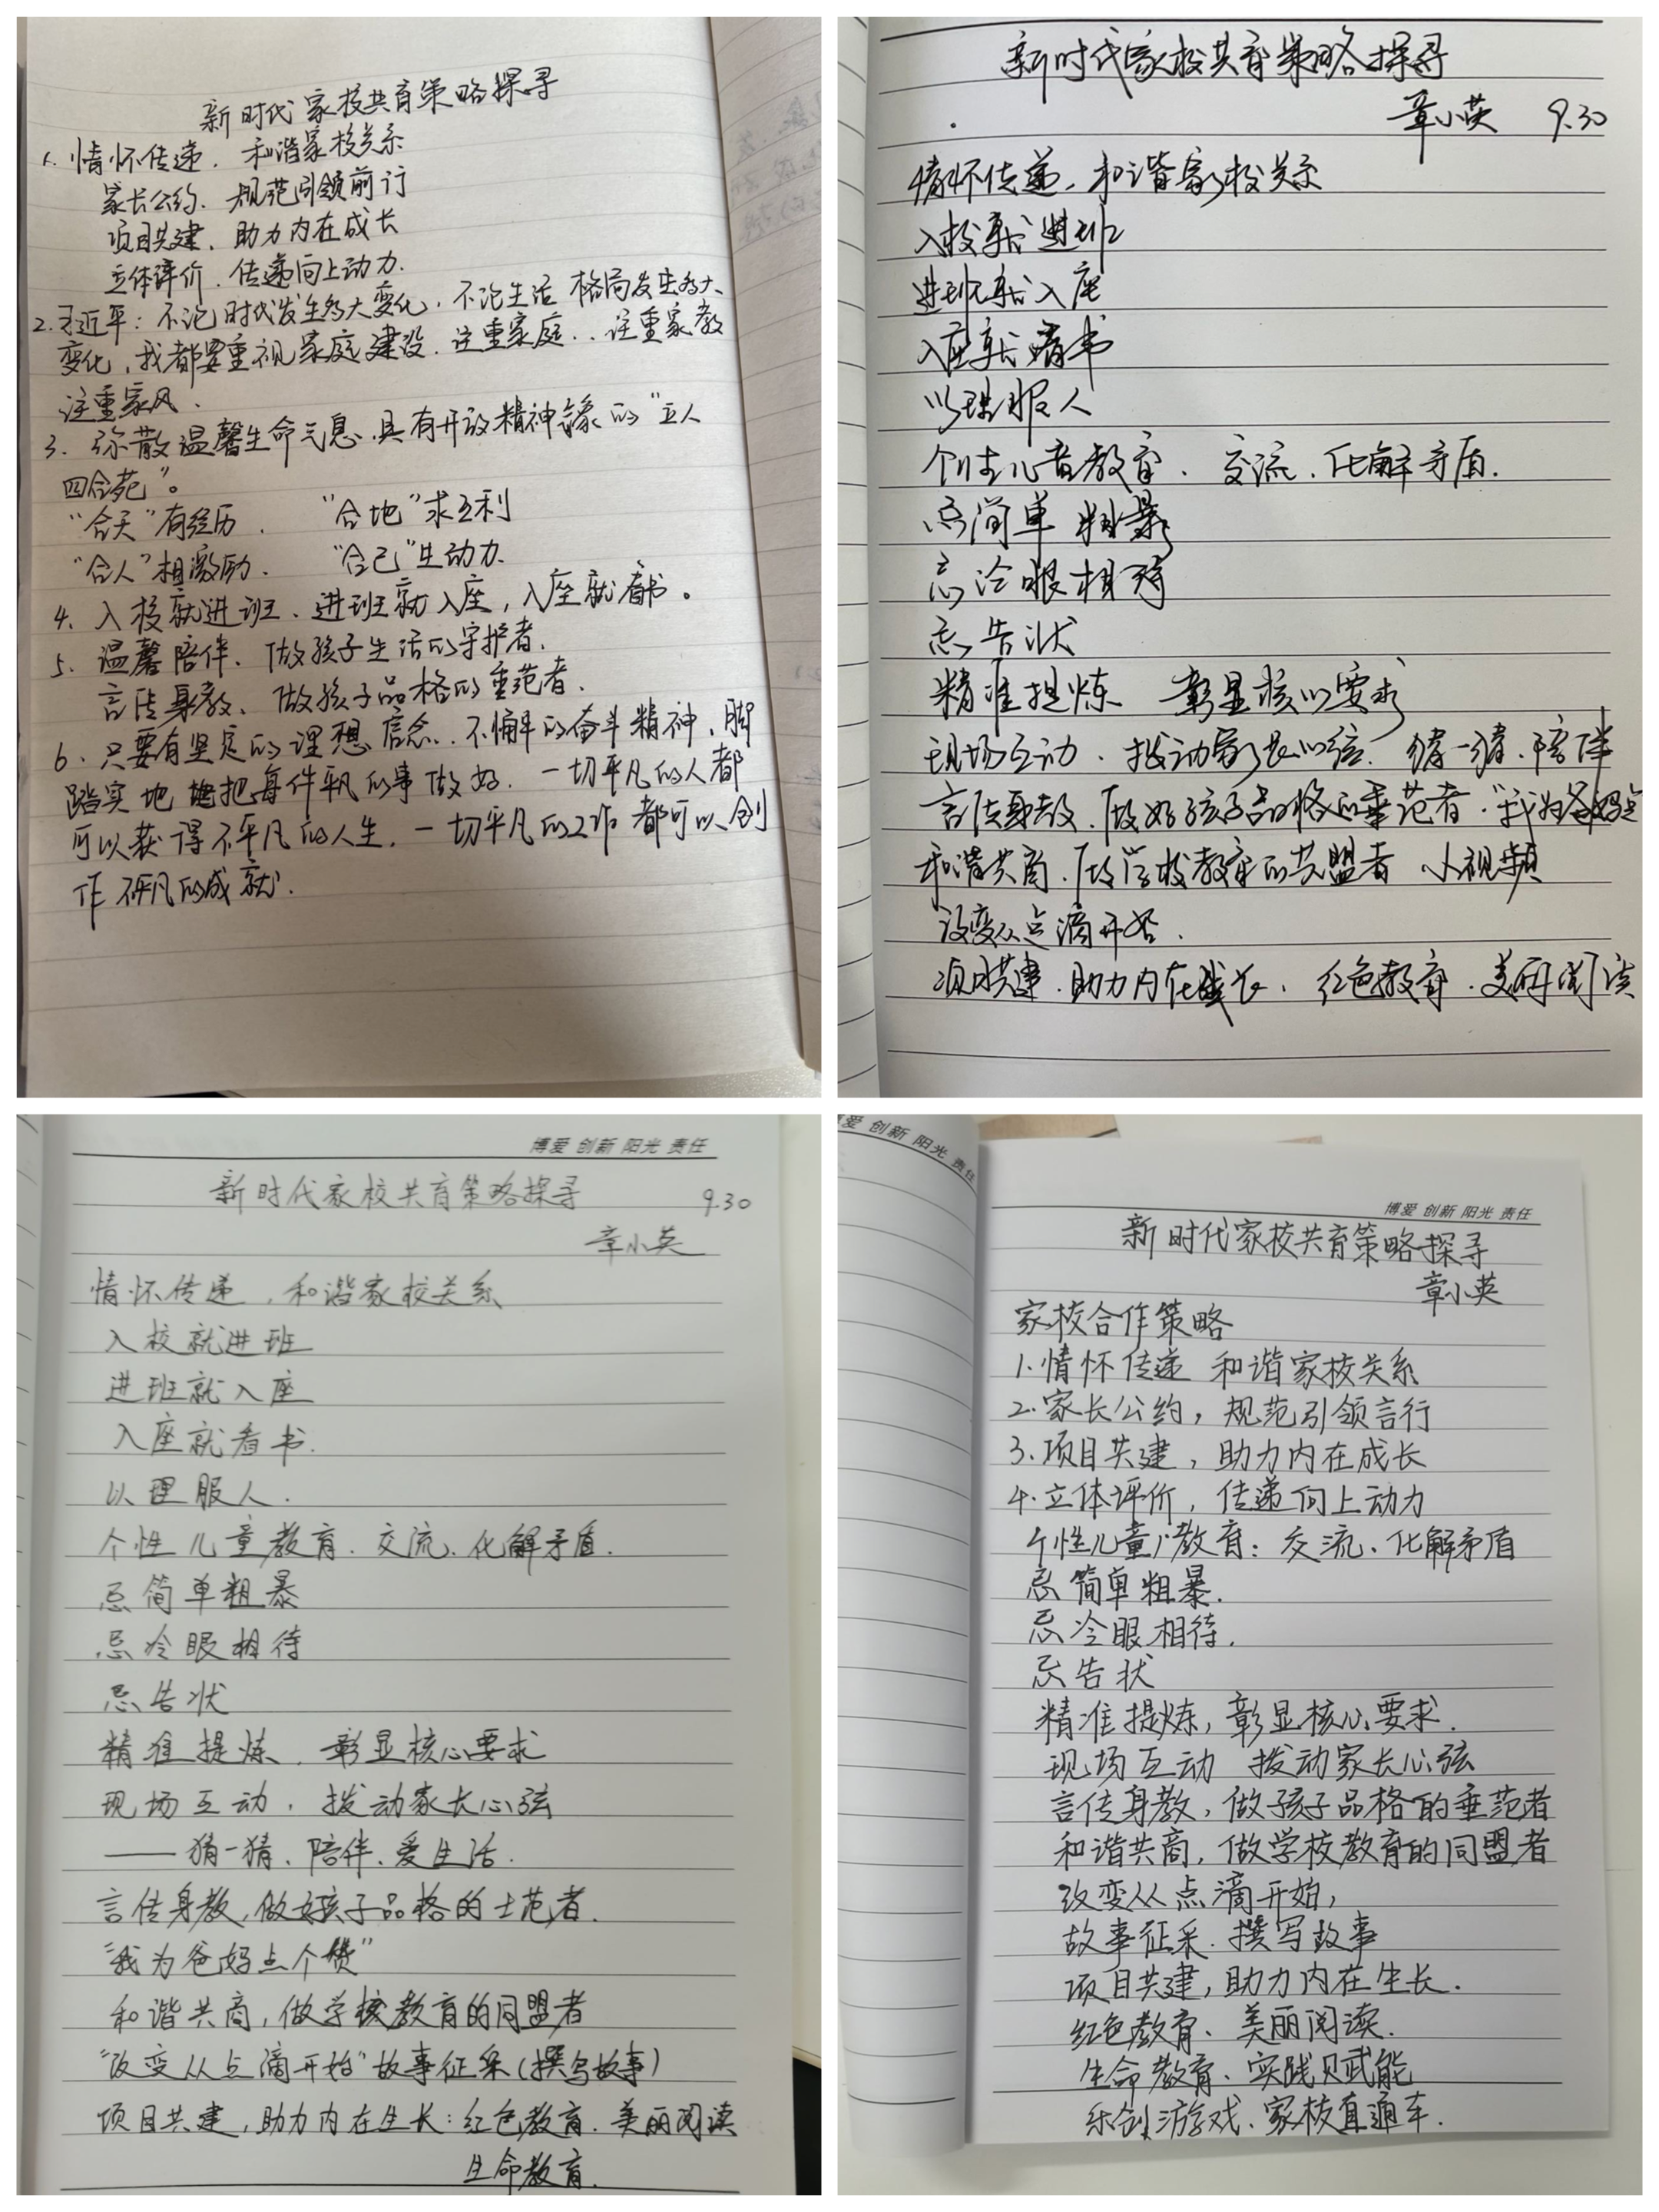 新时代家校共育策略探寻
1. 情怀传递，和谐家校关系
家长公约，规范引领前行
项目共建，助力内在成长
立体评价，传递向上动力.
2. 习近平：不论时代发生多大变化，不论生活格局发生多大
变化，我都要重视家庭建设，注重家庭，注重家教
注重家风、
3. 弥散温馨生命气息，具有开放精神的“立人
四合苑”。
“合天”有经历． “合地”求互利
“合人”相激励． “合己”生动力.
4. 入校就进班、进班就入座，入座就看书。
5. 温馨陪伴、做孩子生活的守护者，
言传身教、做孩子品格的垂范者．
6. 只要有坚定的理想信念．不懈的奋斗精神，脚
踏实地把每件平凡的事做好．一切平凡的人都
可以获得不平凡的人生，一切平凡的工作都可以创
作不平凡的成就．
新时代家校共育策略探寻
章小英 9.30
情怀传递，和谐家校关系
入校就进班
进班就入座
入座就看书
以理服人
个性儿童教育．交流．化解矛盾.
忌简单粗暴
忌冷眼相待
忌告状
精准提炼 彰显核心要求
现场互动．拨动家长心弦．猜一猜．陪伴
言传身教，做好孩子品格的垂范者．“我为爸妈点
和谐共商，做学校教育的同盟者 小视频
改变从点滴开始．
项目共建．助力内在成长．红色教育．美丽阅读
博爱 创新 阳光 责任
新时代家校共育策略探寻 9.30
章小英
情怀传递，和谐家校关系
入校就进班
进班就入座
入座就看书.
以理服人．
个性儿童教育．交流、化解矛盾．
忌简单粗暴
忌冷眼相待
忌告状
精准提炼，彰显核心要求
现场互动，拨动家长心弦
——猜一猜、陪伴、爱生活．
言传身教，做好孩子品格的范者．
“我为爸妈点个赞”
和谐共商，做学校教育的同盟者
“改变从点滴开始”故事征采（撰写故事）
项目共建，助力内在生长：红色教育．美丽阅读
生命教育．
爱 创新 阳光 责任
博爱 创新 阳光 责任
新时代家校共育策略探寻
章小英
家校合作策略
1.情怀传递 和谐家校关系
2.家长公约，规范引领言行
3.项目共建，助力内在成长
4.立体评价，传递向上动力
个性儿童教育：交流、化解矛盾
忌简单粗暴．
忌冷眼相待．
忌告状
精准提炼，彰显核心要求．
现场互动 拨动家长心弦
言传身教，做孩子品格的垂范者
和谐共商，做学校教育的同盟者
改变从点滴开始，
故事征采．撰写故事
项目共建，助力内在生长．
红色教育、美丽阅读．
生命教育、实践赋能
乐创游戏、家校直通车．